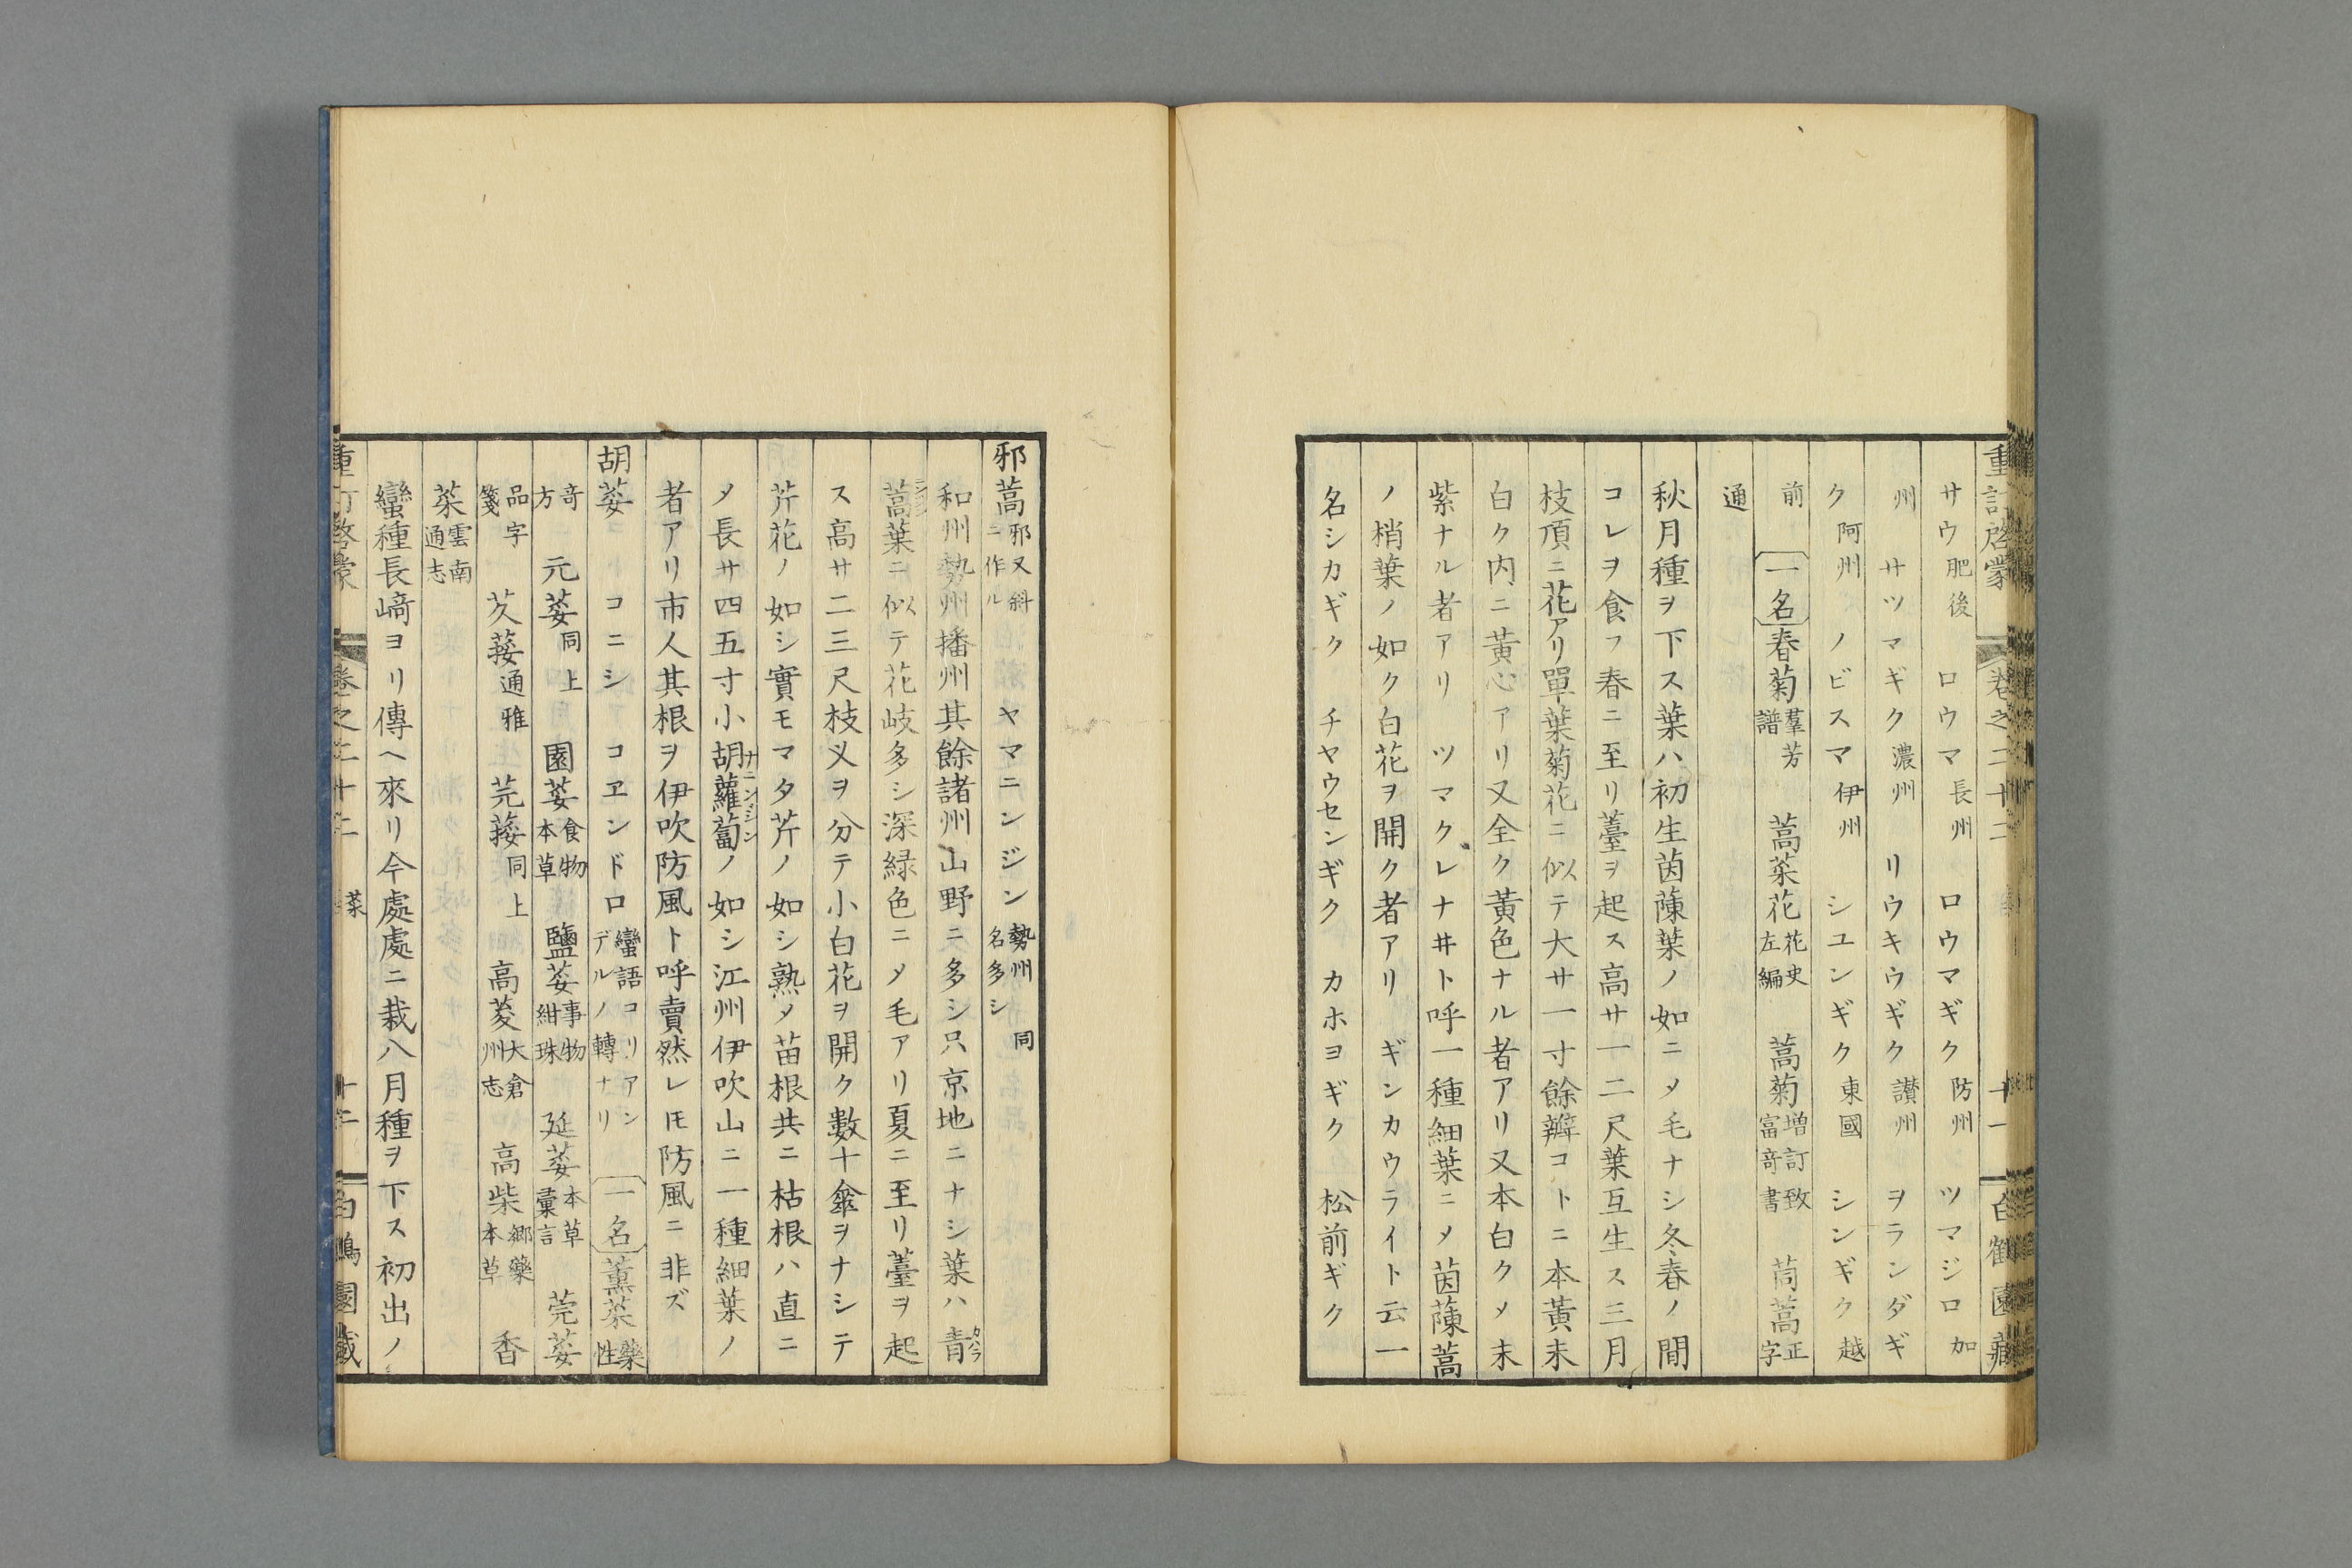 重訂啓蒙 巻之二十二 十一
サウ肥後 ロウマ長州 ロウマギク防州 ツマジロ加
州 サツマギク濃州 リウキウギク讃州 ヲランダギ
ク阿州 ノビスマ伊州 シユンギク東國 シンギク越
前 一名春菊羣芳譜 蒿菜花花史左編 蒿菊増訂致富奇書 茼蒿正字
通
秋月種ヲ下ス葉ハ初生茵蔯葉ノ如ニメ毛ナシ冬春ノ間
コレヲ食フ春ニ至リ薹ヲ起ス高サ一二尺葉互生ス三月
枝頂ニ花アリ單葉菊花ニ似テ大サ一寸餘瓣コトニ本黄末
白ク内ニ黄心アリ又全ク黄色ナル者アリ又本白クメ末
紫ナル者アリ ツマクレナ井ト呼一種細葉ニメ茵蔯蒿
ノ梢葉ノ如ク白花ヲ開ク者アリ ギンカウライト云一
名シカギク チヤウセンギク カホヨギク 松前ギク
邪蒿邪又斜ニ作ル ヤマニンジン勢州同名多シ
和州勢州播州其餘諸州山野ニ多シ只京地ニナシ葉ハ青
蒿葉ニ似テ花岐多シ深緑色ニメ毛アリ夏ニ至リ薹ヲ起
ス高サ二三尺枝乂ヲ分テ小白花ヲ開ク數十傘ヲナシテ
芹花ノ如シ實モマタ芹ノ如シ熟メ苗根共ニ枯根ハ直ニ
メ長サ四五寸小胡蘿蔔ノ如シ江州伊吹山ニ一種細葉ノ
者アリ市人其根ヲ伊吹防風ト呼賣然レ𪜈防風ニ非ズ
胡荽 コニシ コヱンドロ蠻語コリアンデルノ轉ナリ 一名薫菜藥性
奇方 元荽同上 園荽食物本草 鹽荽事物紺珠 延荽本草彙言 莞荽
品字箋 芡荾通雅 芫荾同上 高荾大倉州志 高柴郷藥本草 香
菜雲南通志
蠻種長﨑ヨリ傳ヘ來リ今處處ニ栽八月種ヲ下ス初出ノ
重訂啓蒙 巻之二十二 菜 十二